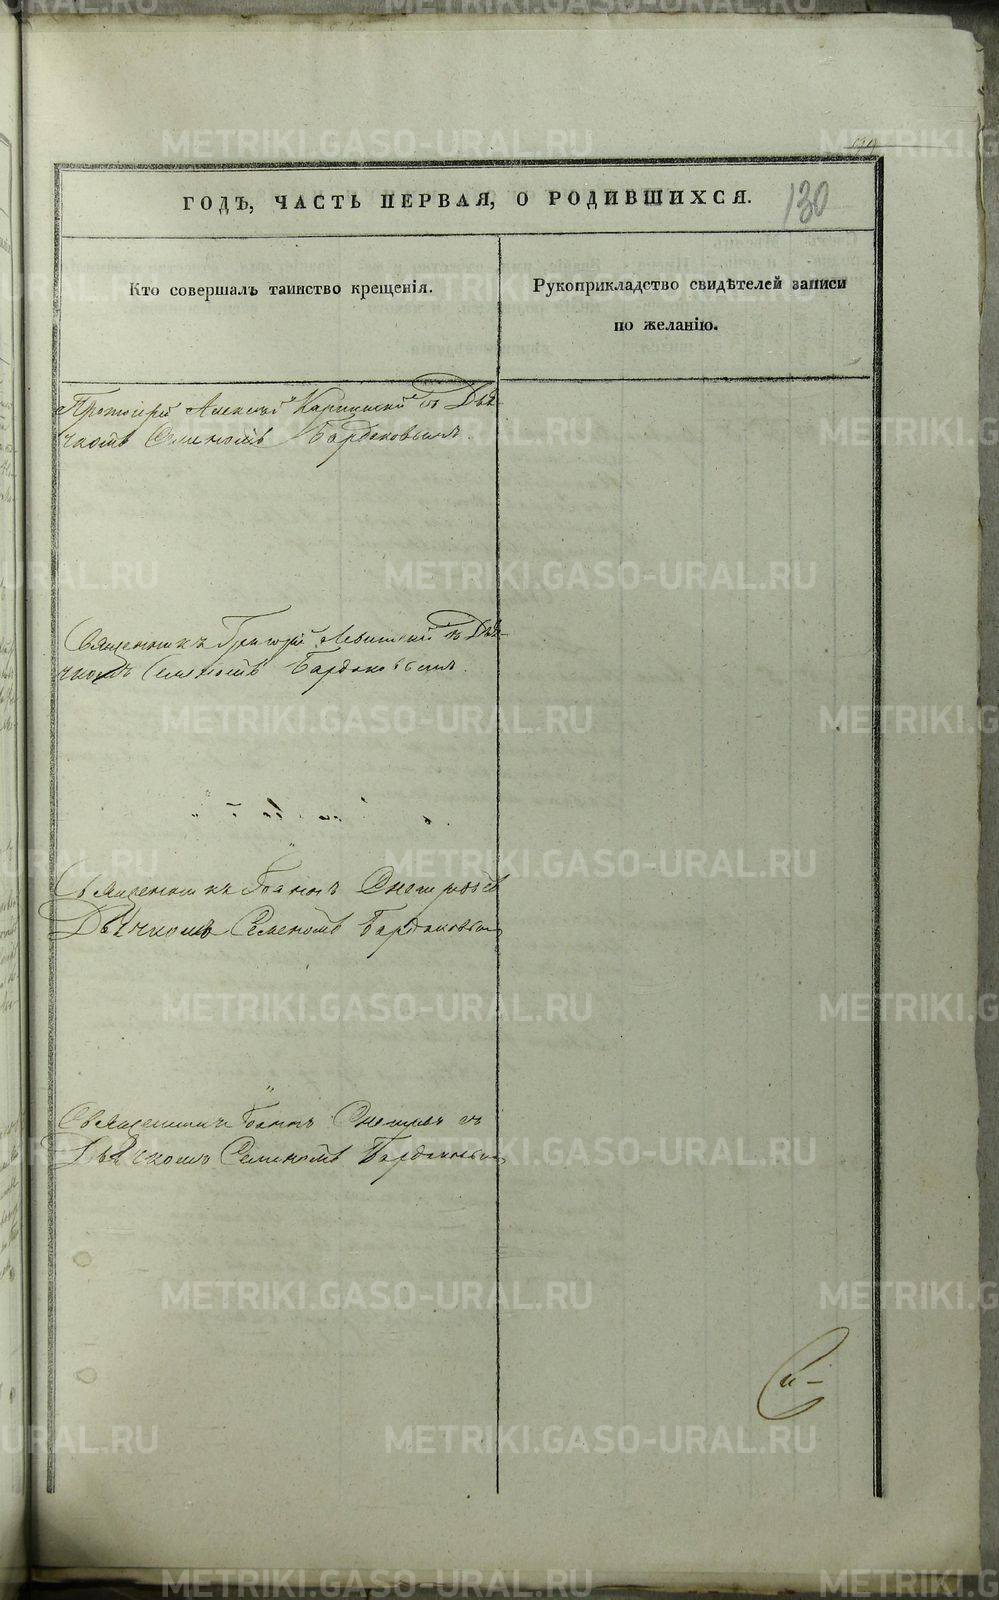 130
ГОДЪ, ЧАСТЬ ПЕРВАЯ, О РОДИВШИХСЯ.
Кто совершалъ таинство крещенія.
Рукоприкладство свидѣтелей записи
по желанію.
Протоіерей Алексѣй Карпинскій съ Дья-
чкомъ Семеномъ Бардаковымъ.
Священникъ Григорій Левитскій съ Дья-
чкомъ Семеномъ Бардаковымъ.
Священникъ Іоаннъ съ
Дьячкомъ Семеномъ Бардаковымъ
Священникъ Іоаннъ съ
Дьячкомъ Семеномъ Бардаковымъ
METRIKI.GASO-URAL.RU